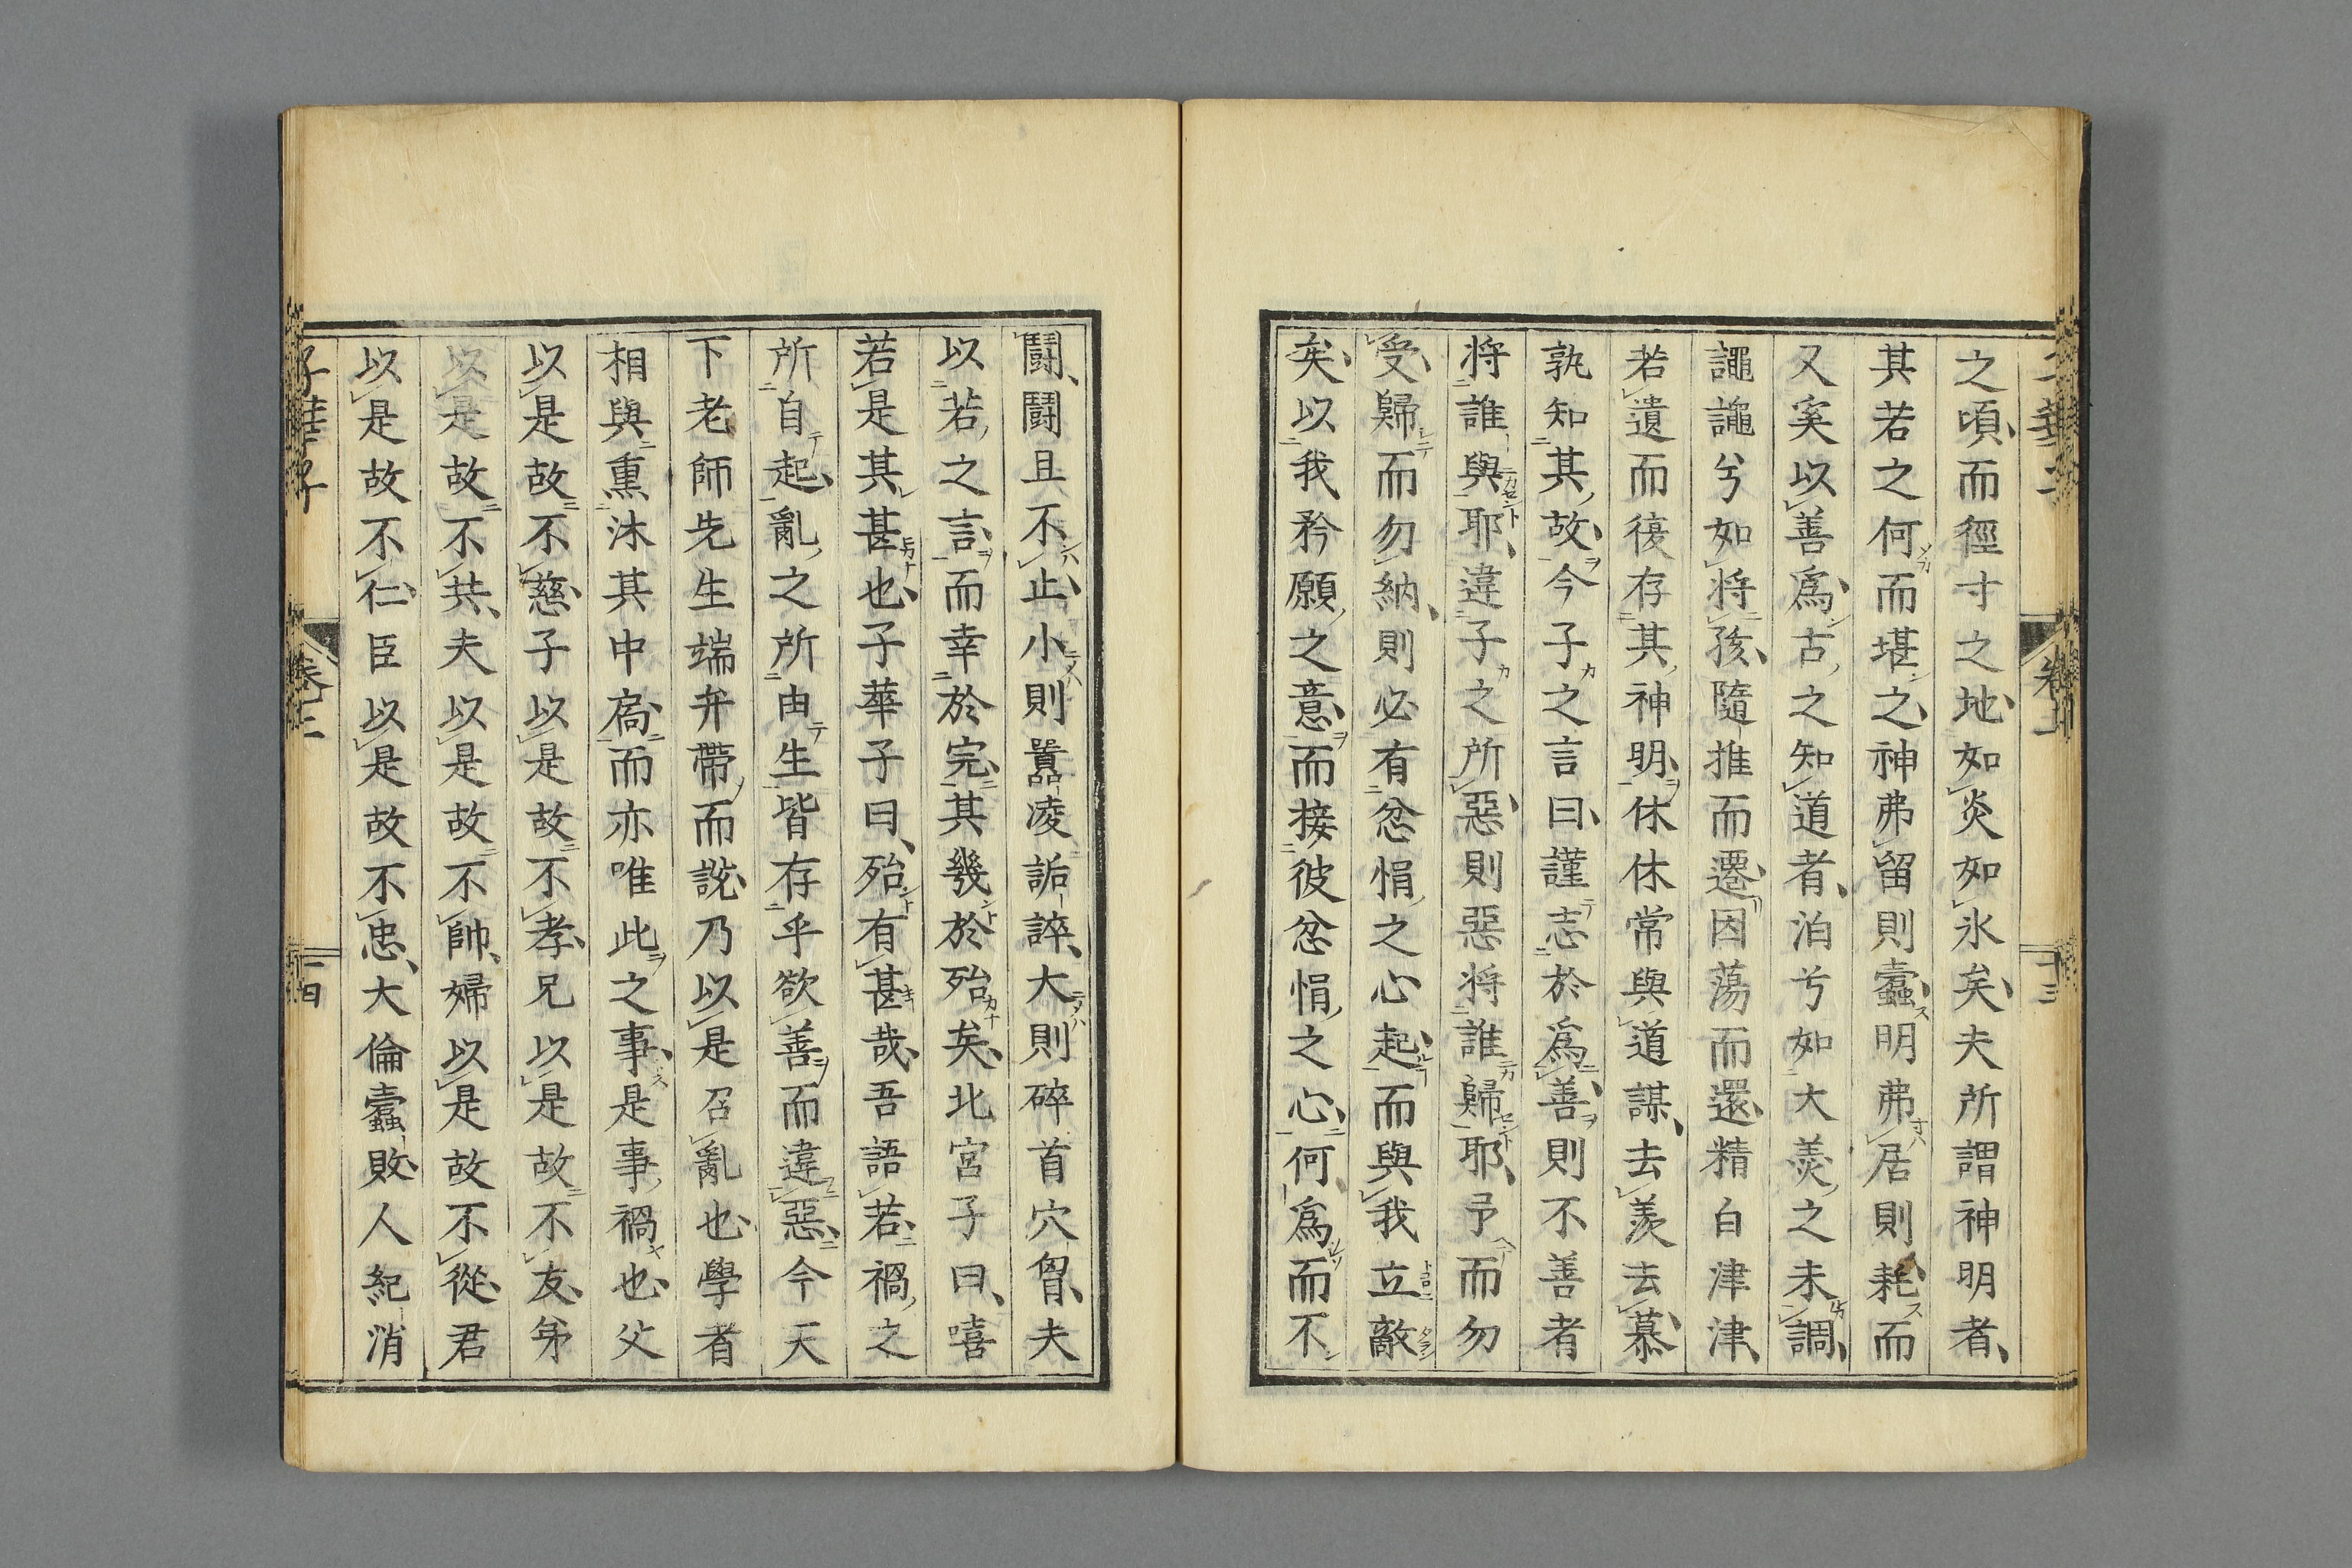 之頃而徑寸之地如炎如氷矣夫所謂神明者
其若之何而堪之神弗留則蠹明弗居則耗而
又奚以善爲古之知道者泊兮如大羮之未調
䵷䵷兮如將孩隨推而遷因蕩而還精白津津
若遺而復存其神明休休常與道謀去羨去慕
孰知其故今子之言曰謹志於爲善則不善者
將誰與耶違子之所惡則惡將誰歸耶予而勿
受歸而勿納則必有忿悁之心起而與我立敵
矣以我矜願之意而接彼忿悁之心何爲而不
鬪鬪且不止小則囂凌詬誶大則碎首穴胷夫
以若之言而幸於完其幾於殆矣北宮子曰嘻
若是其甚也子華子曰殆有甚哉吾語若禍之
所自起亂之所由生皆存乎欲善而違惡今天
下老師先生端弁帶而説乃以是召亂也學者
相與熏沐其中扃而亦唯此之事是事禍也父
以是故不慈子以是故不孝兄以是故不友弟
以是故不共夫以是故不帥婦以是故不從君
以是故不仁臣以是故不忠大倫蠹敗人紀消
子華子